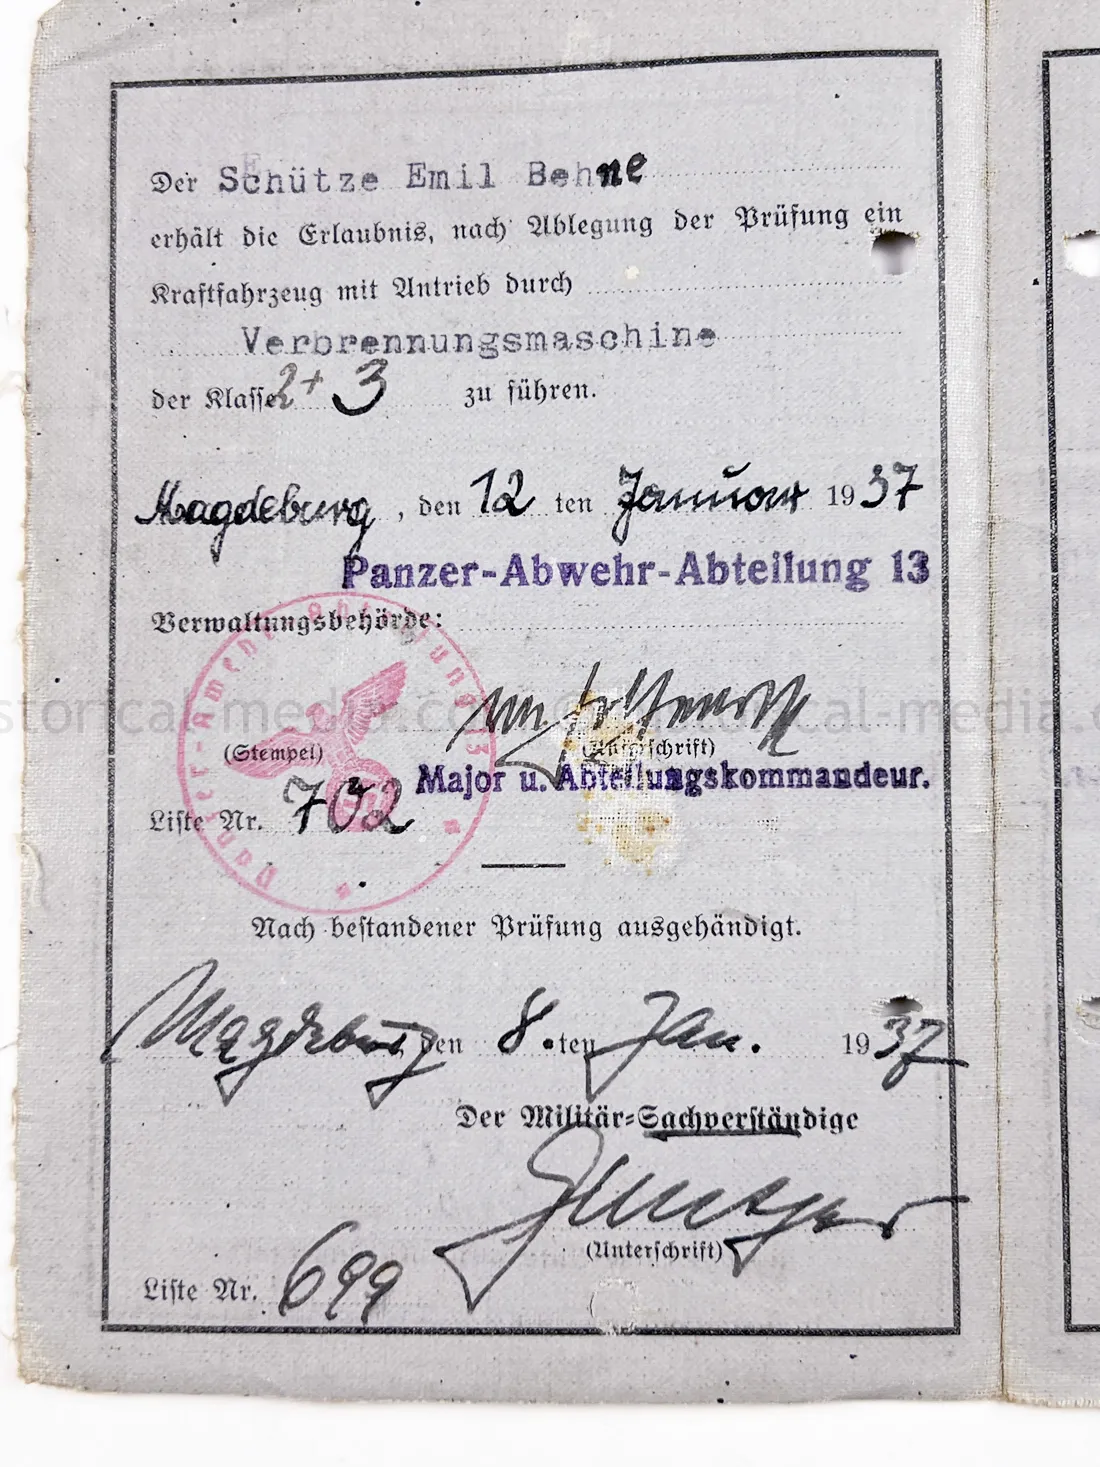 Der Schütze Emil Behne
erhält die Erlaubnis, nach Ablegung der Prüfung ein
Kraftfahrzeug mit Antrieb durch
Verbrennungsmaschine
der Klasse 2+3 zu führen.
Magdeburg, den 12 ten Januar 1937
Panzer-Abwehr-Abteilung 13
Verwaltungsbehörde:
Panzer-Abwehr-Abteilung 13
(Stempel) (Unterschrift)
Major u. Abteilungskommandeur.
Liste Nr. 702
Nach bestandener Prüfung ausgehändigt.
Magdeburg, den 8. ten Jan. 1937
Der Militär-Sachverständige
(Unterschrift)
Liste Nr. 699